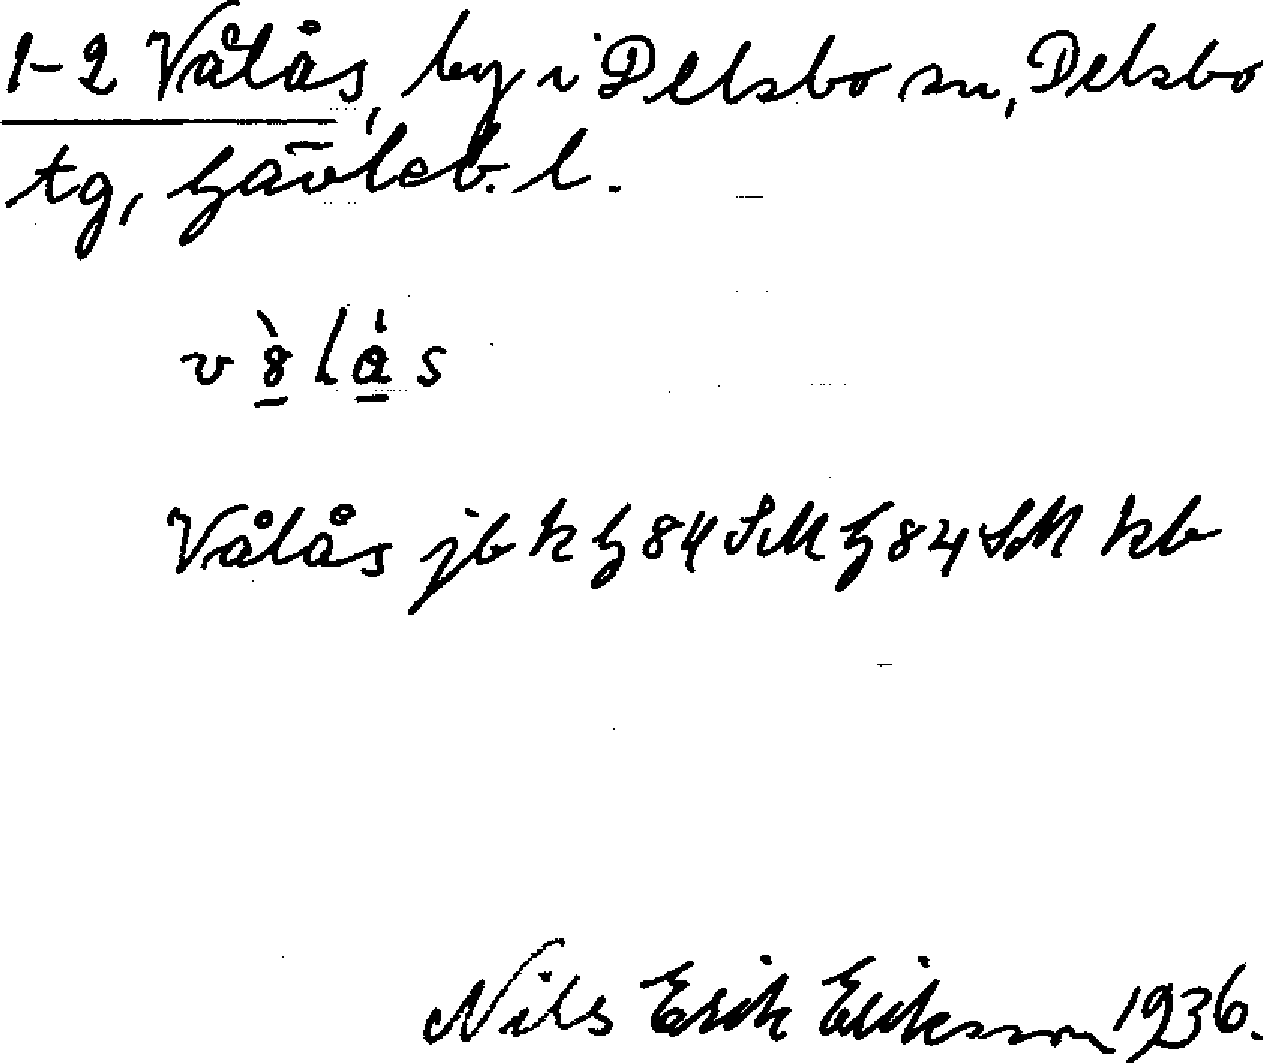 1-2 Vålås, by i Delsbo sn, Delsbo
tg, Gävleb. l.
Vålås jb k G 84 SM G 84 SM kb
Nils Erik Eriksson 1936.